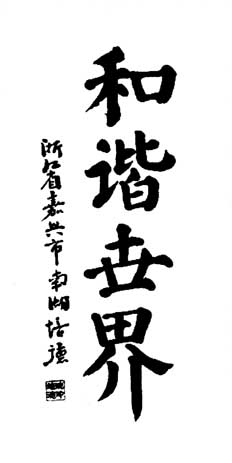 和谐世界
浙江省嘉兴市南湖培德